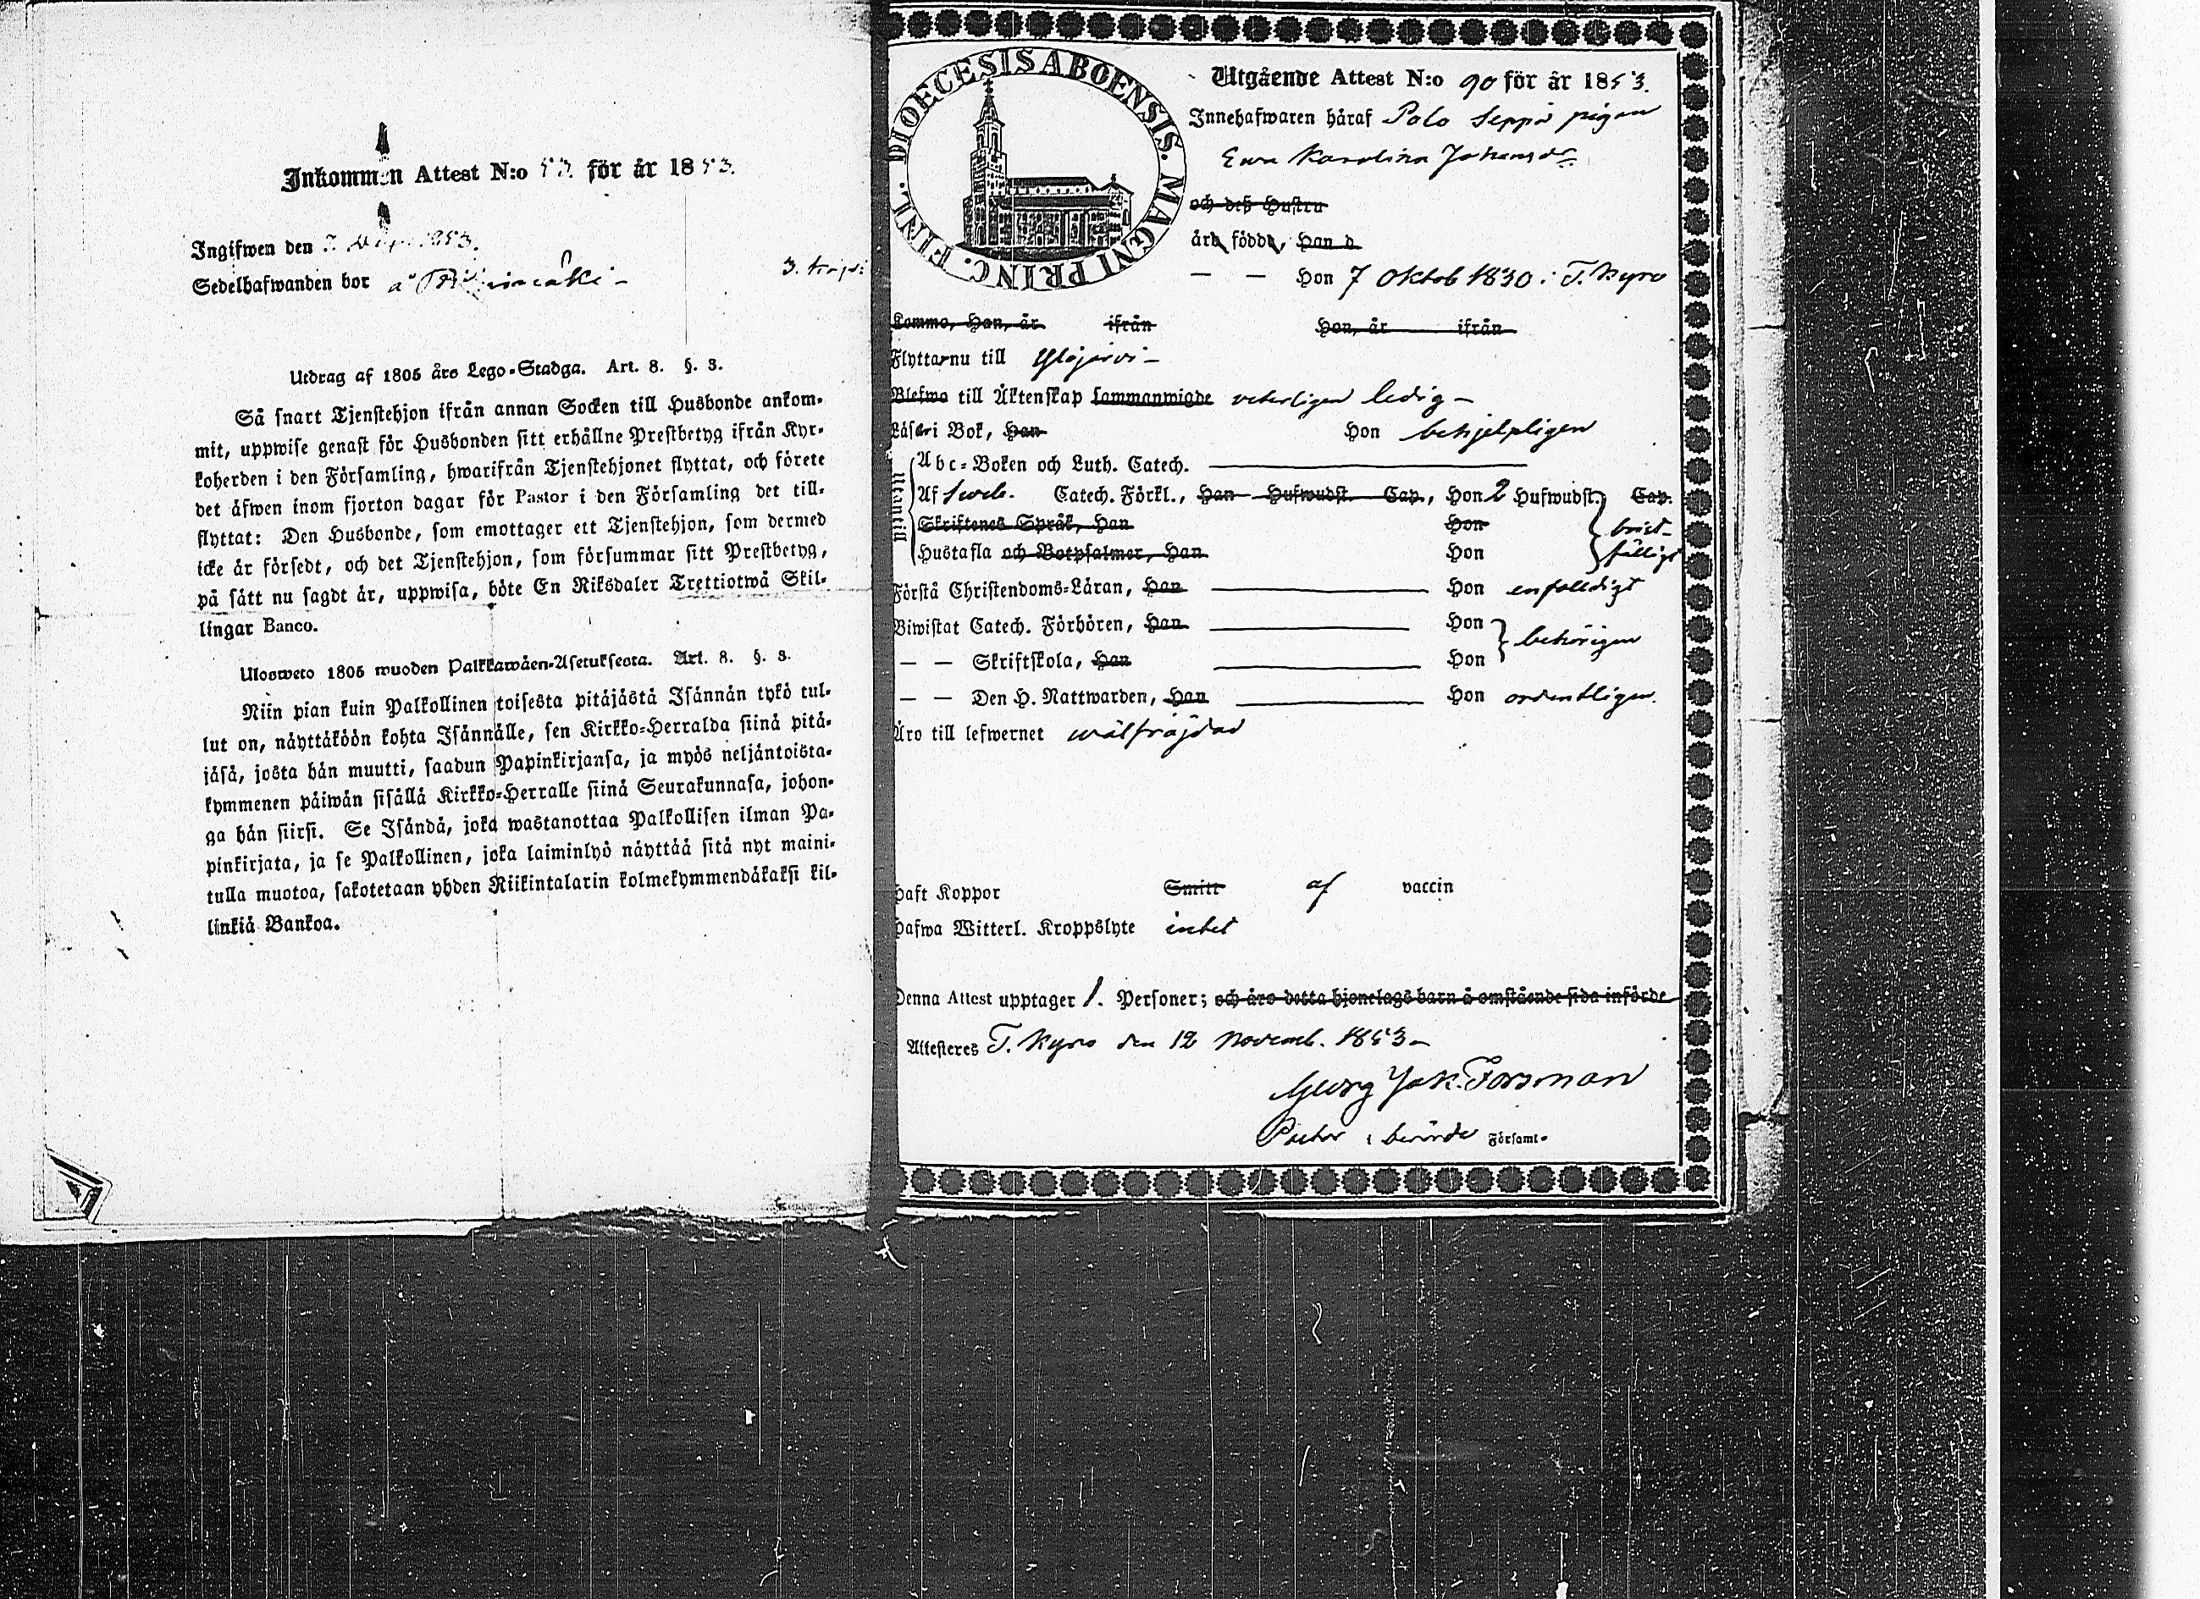 Inkommen Attest N:o 53. för år 1853.
Ingifwen den 1853.
Sedelhafwanden bor å
Utdrag af 1805 års Lego-Stadga. Art. 8. §. 3.
Så snart Tjenstehjon ifrån annan Socken till Husbonde ankom-
mit, uppwise genast för Husbonden sitt erhållne Prestbetyg ifrån Kyr-
koherden i den Församling, hwarifrån Tjenstehjonet flyttat, och förete
det äfwen inom fjorton dagar för Pastor i den Församling det till-
flyttat: Den Husbonde, som emottager ett Tjenstehjon, som dermed
icke är försedt, och det Tjenstehjon, som försummar sitt Prestbetyg,
på sätt nu sagdt är, uppwisa, böte En Riksdaler Trettiotwå Skil-
lingar Banco.
Ulosweto 1805 wuoden Palkkawäen-Asetuksesta. Art. 8. §. 3.
Niin pian kuin Palkollinen toisesta pitäjästä Isännän tykö tul-
lut on, näyttäköön kohta Isännälle, sen Kirkko-Herralda siinä pitä-
jäsä, josta hän muutti, saadun Papinkirjansa, ja myös neljäntoista-
kymmenen päiwän sisällä Kirkko-Herralle siinä Seurakunnasa, johon-
ga hän siirsi. Se Isändä, joka wastanottaa Palkollisen ilman Pa-
pinkirjata, ja se Palkollinen, joka laiminlyö näyttää sitä nyt maini-
tulla muotoa, sakotetaan yhden Riikintalarin kolmekymmendäkaksi kil-
linkiä Bankoa.
DIOECESIS ABOENSIS. MAGNI PRINC. FINL.
Utgående Attest N:o 90 för år 1853.
Innehafwaren häraf Polo Seppä pigan
Ewa Karolina Johansdr
och deß Hustru
äro födde, Han d.
— — Hon 7 Oktob 1830 i T. Kyro
Komme, Han, år ifrån Hon, år ifrån
Flyttar nu till Ylöjärvi –
Blefwo till Äktenskap sammanwigde veterligen ledig –
Läser i Bok, Han Hon behjelpligen
Utantill
Abc-Boken och Luth. Catech.
Af Sweb. Catech. Förkl., Han Hufwudst. Cap., Hon 2 Hufwudst. Cap.
Skriftenes Språk, Han Hon brist-
Hustafla och Botpsalmer, Han Hon fälligt
Förstå Christendoms-Läran, Han Hon enfaldigt
Biwistat Catech. Förhören, Han Hon
— — Skriftskola, Han Hon behörigen
— — Den H. Nattwarden, Han Hon ordentligen.
Äro till lefwernet wälfräjdad
Haft Koppor Smitt af vaccin
Hafwa Witterl. Kroppslyte intet
Denna Attest upptager 1. Personer; och äro detta hjonelags barn å omstående sida införde
Attesteres T. Kyro den 12 Novemb. 1853 –
Georg Jak. Forsman
Pastor i berörde Församl.